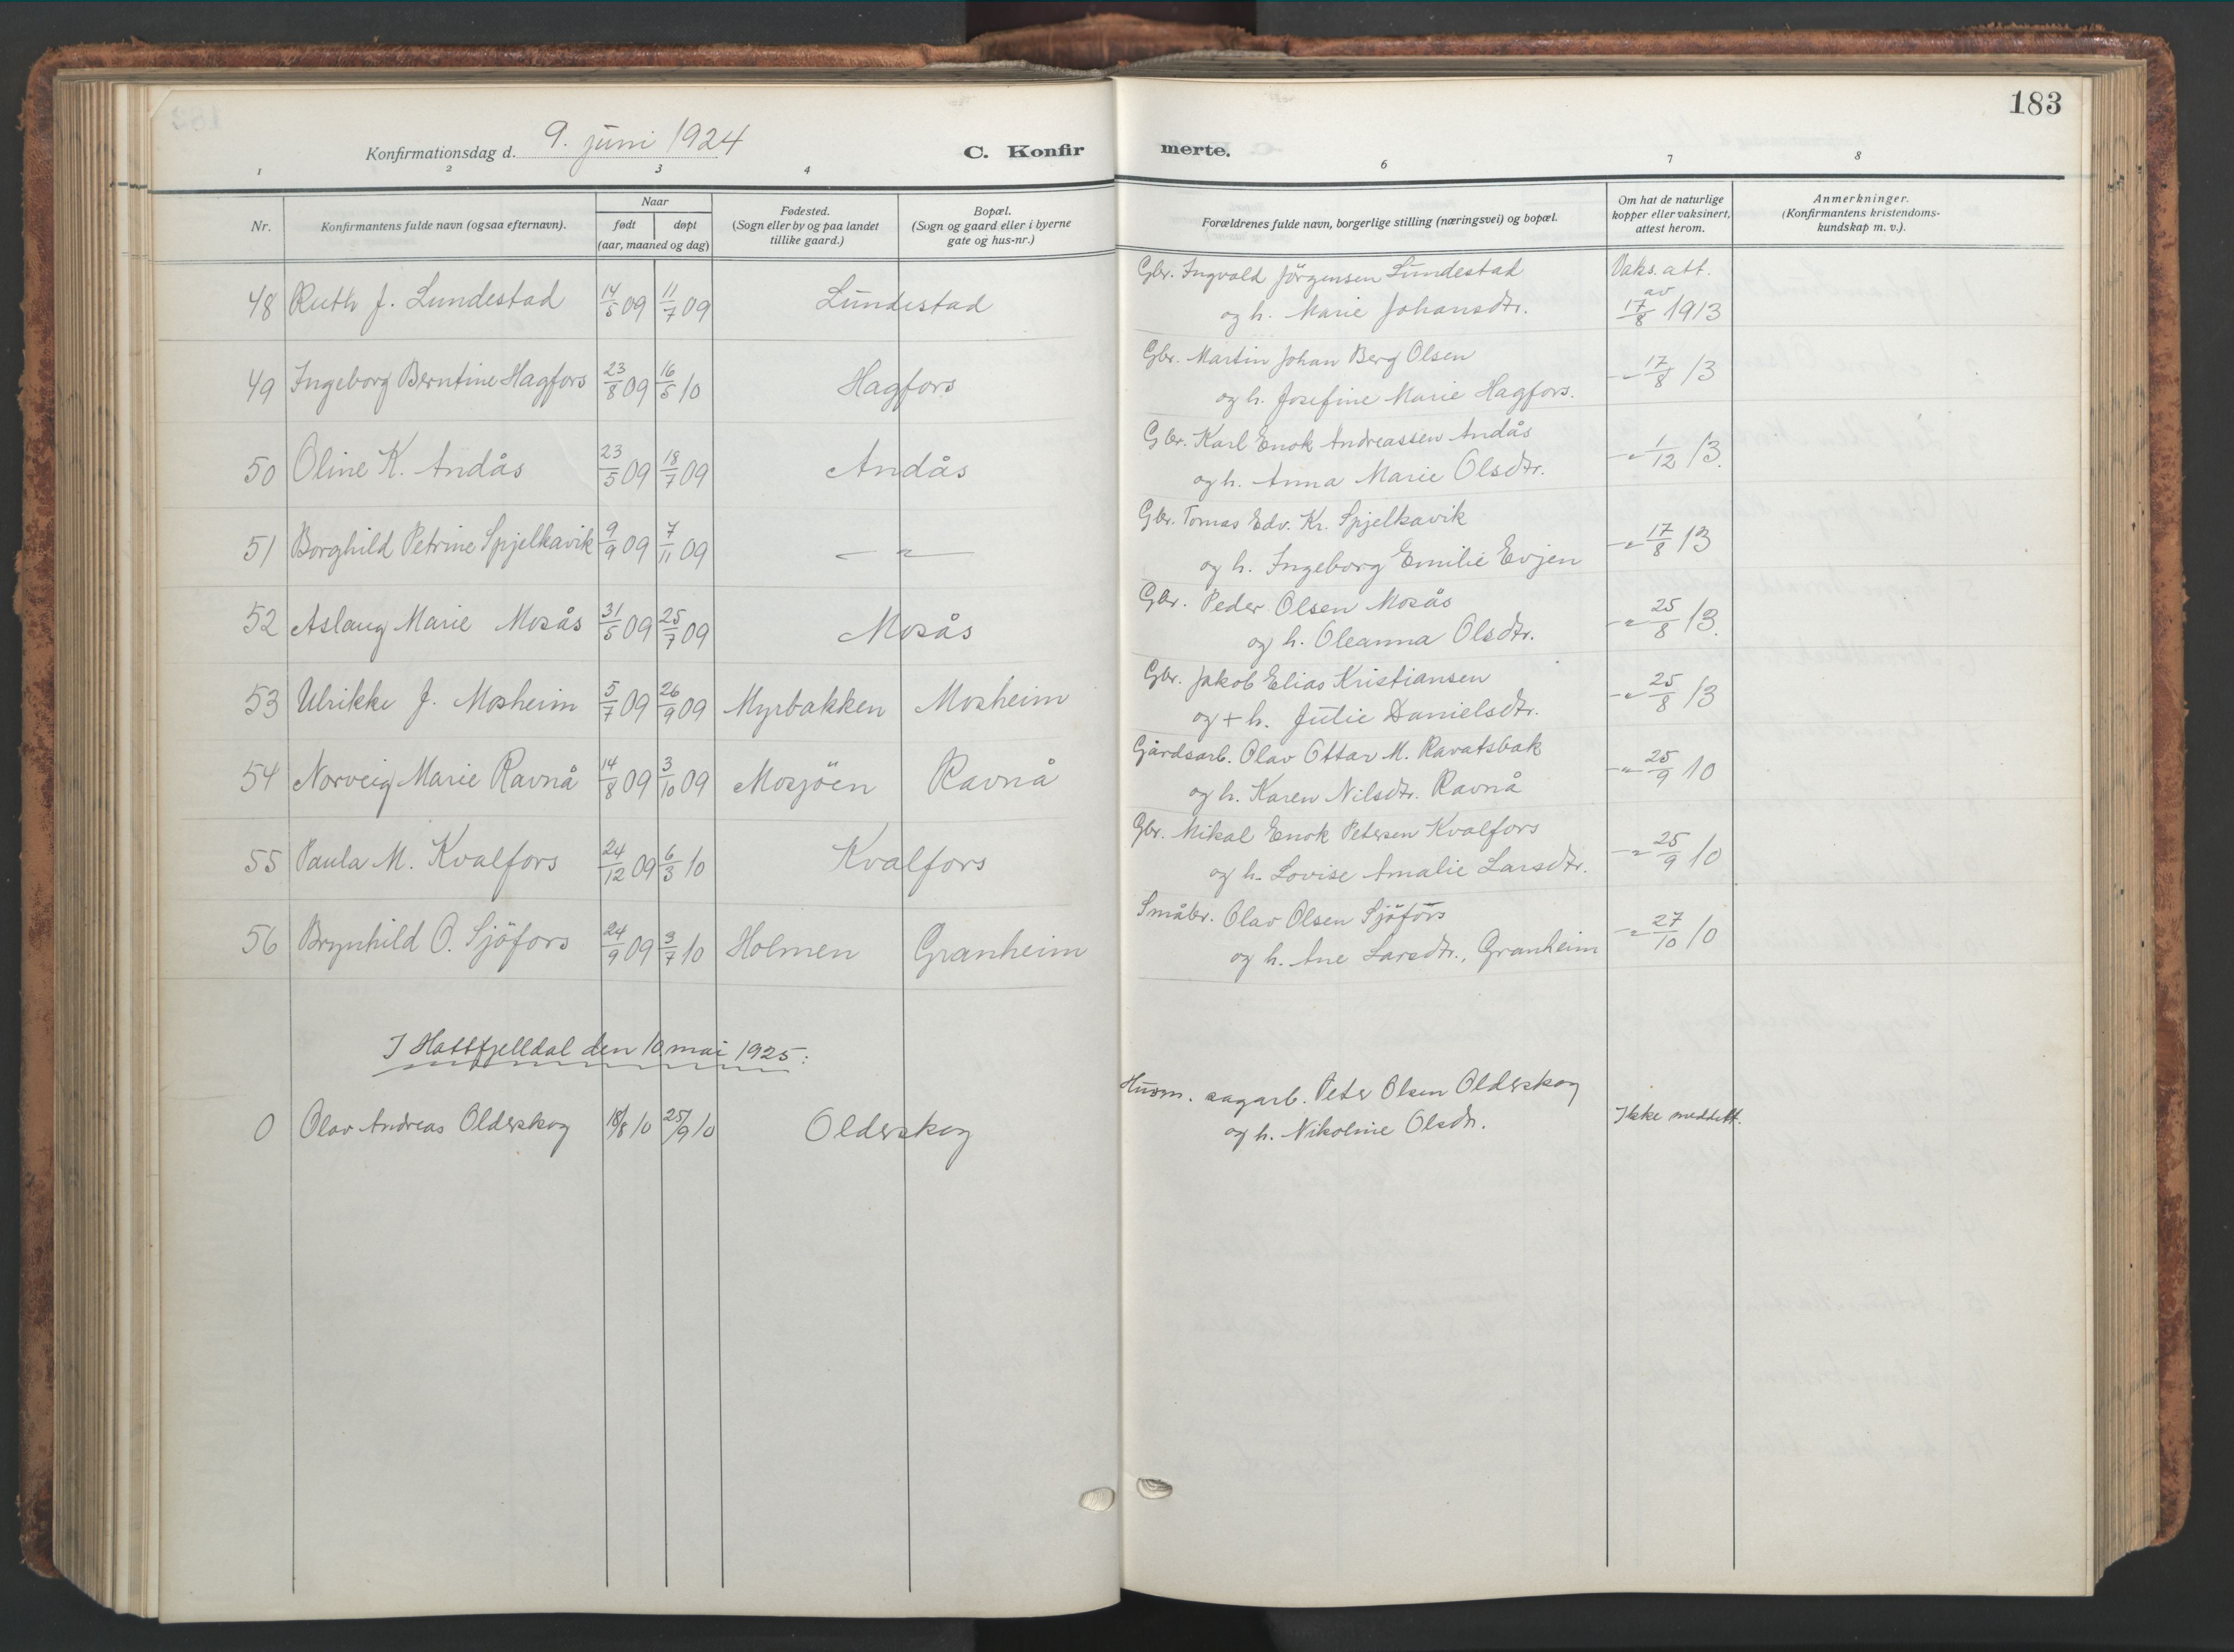 183
Konfirmationsdag d. 9. juni 1924
C. Konfir merte.
1 2 3 4 6 7 8
Nr.
Konfirmantens fulde navn (ogsaa efternavn).
Naar
født døpt
(aar, maaned og dag)
Fødested.
(Sogn eller by og paa landet
tillike gaard.)
Bopæl.
(Sogn og gaard eller i byerne
gate og hus-nr.)
Forældrenes fulde navn, borgerlige stilling (næringsvei) og bopæl.
Om hat de naturlige
kopper eller vaksinert,
attest herom.
Anmerkninger.
(Konfirmantens kristendoms-
kundskap m. v.).
48 Ruth J. Lundestad 14/5 09 11/7 09 Lundestad
Gbr. Ingvald Jörgensen Lundestad
og h. Marie Johansdtr.
Vaks. att.
av
17/8 1913
49 Ingeborg Berntine Hagfors 23/8 09 16/5 10 Hagfors
Gbr. Martin Johan Berg Olsen
og h. Josefine Marie Hagfors.
-"- 17/8 13
50 Oline K. Andås 23/5 09 18/7 09 Andås
Gbr. Karl Enok Andreassen Andås
og h. Anna Marie Olsdtr.
-"- 1/12 13.
51 Borghild Petrine Spjelkavik 9/9 09 7/11 09 — " —
Gbr. Tomas Edv. Kr. Spjelkavik
og h. Ingeborg Emilie Evjen
-"- 17/8 13
52 Aslaug Marie Mosås 31/5 09 25/7 09 Mosås
Gbr. Peder Olsen Mosås
og h. Oleanna Olsdtr.
-"- 25/8 13.
53 Ulrikke J. Mosheim 5/7 09 26/9 09 Myrbakken Mosheim
Gbr. Jakob Elias Kristiansen
og + h. Julie Danielsdtr.
-"- 25/8 13
54 Norveig Marie Ravnå 14/8 09 3/10 09 Mosjöen Ravnå
Gårdsarb. Olav Ottar M. Ravatsbak
og h. Karen Nilsdtr. Ravnå
-"- 25/9 10
55 Paula M. Kvalfors 24/12 09 6/3 10 Kvalfors
Gbr. Mikal Enok Petersen Kvalfors
og h. Lovise Amalie Larsdtr.
-"- 25/9 10
56 Brynhild O. Sjöfors 24/9 09 3/7 10 Holmen Granheim
Småbr. Olav Olsen Sjöfors
og h. Ane Larsdtr., Granheim
-"- 27/10 10
I Hattfjelldal den 10. mai 1925:
0 Olav Andreas Olderskog 18/8 10 25/9 10 Olderskog
Husm. sagarb. Peter Olsen Olderskog
og h. Nikoline Olsdtr.
Ikke meddelt.